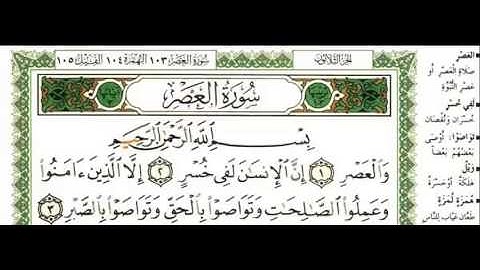 سُورَةُ العَصْرِ ١٠٣ الهُمَزَة ١٠٤ الفِيل ١٠٥
الجزء الثلاثون
سُورَةُ العَصْرِ
بِسْمِ اللَّهِ الرَّحْمَٰنِ الرَّحِيمِ
وَالْعَصْرِ ١ إِنَّ الْإِنسَانَ لَفِي خُسْرٍ ٢ إِلَّا الَّذِينَ ءَامَنُوا
وَعَمِلُوا الصَّالِحَاتِ وَتَوَاصَوْا بِالْحَقِّ وَتَوَاصَوْا بِالصَّبْرِ ٣
العَصْر
صَلاةِ العَصْرِ أو
عَصْرِ النُّبُوَّة
لَفِي خُسْر
خُسْرَانٍ وَنُقْصَان
تَوَاصَوْا: أَوْصَى
بَعْضُهُمْ بَعْضًا
وَيْلٌ
هَلَكَةٌ أو حَسْرَةٌ
هُمَزَةٍ لُمَزَةٍ
طَعَّانٍ عَيَّابٍ لِلنَّاسِ